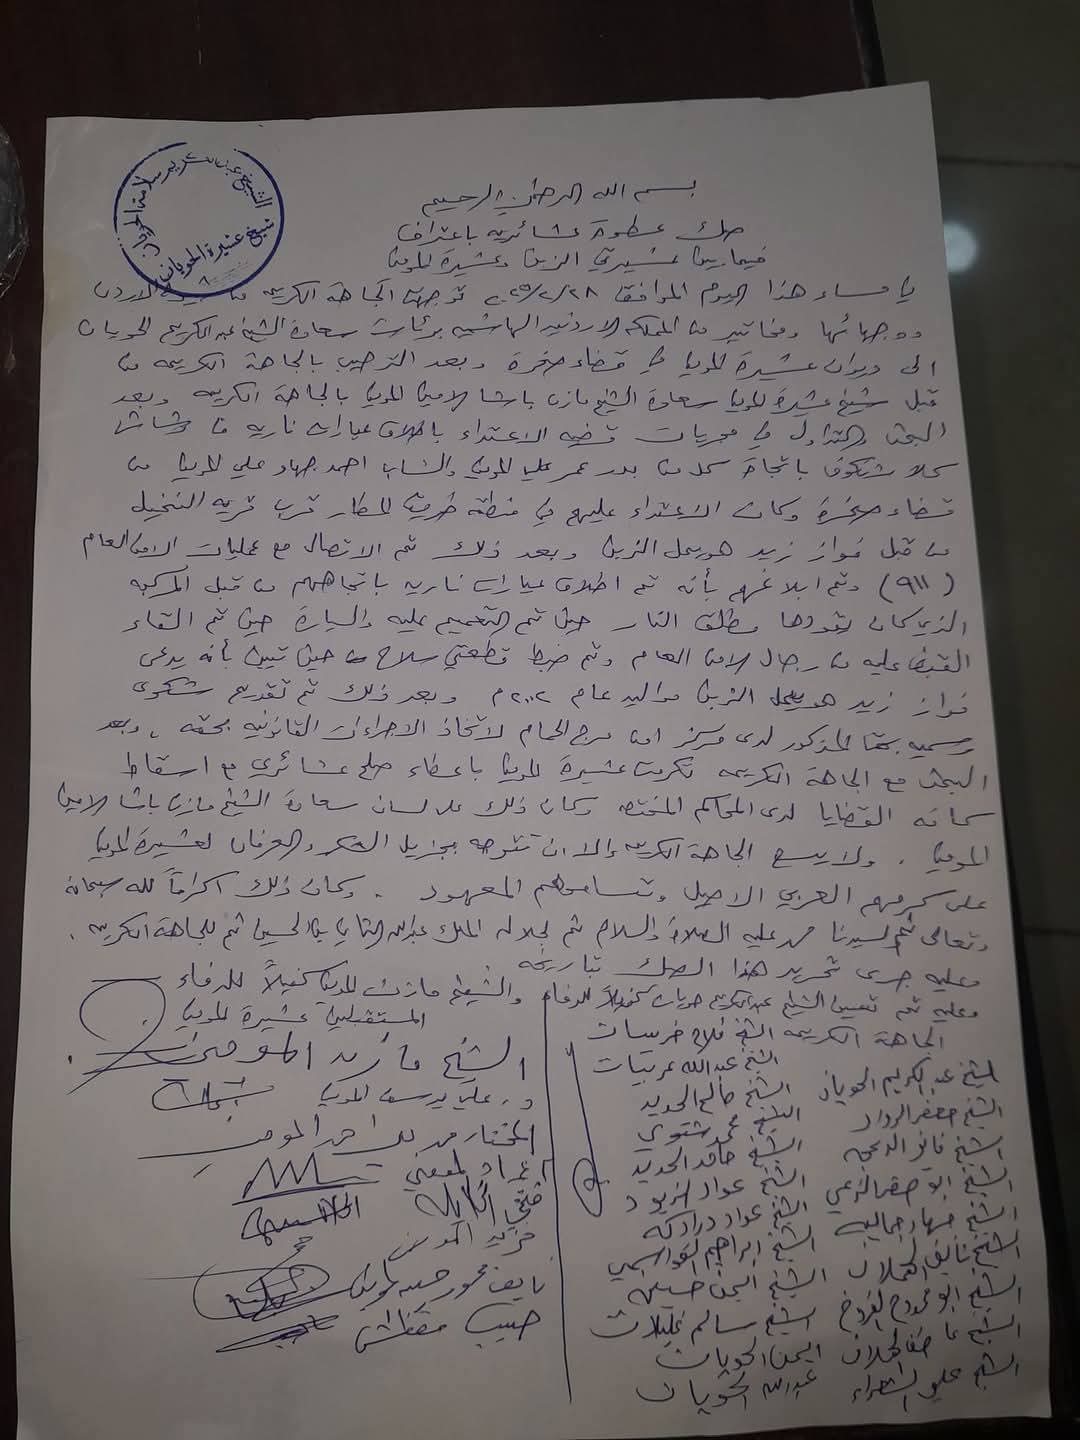 الشيخ عبدالكريم سلامة الحويان
شيخ عشيرة الحويان
بسم الله الرحمن الرحيم
صك عطوة عشائرية باعتراف
فيما بين عشيرتي الزبن وعشيرة المومنا
في مساء هذا اليوم الموافق ٢٠٢٥/٢/٢٨ توجهت الجاهة الكريمة من الاردن
ووجهائها ومخاتير من المملكة الاردنية الهاشمية برئاسة سعادة الشيخ عبدالكريم الحويان
الى ديوان عشيرة المومنا في قضاء صخرة وبعد الترحيب بالجاهة الكريمه من
قبل شيخ عشيرة المومنا سعادة الشيخ مازن باشا الامين المومنا بالجاهة الكريمه وبعد
البحث والتداول في مجريات قضيه الاعتداء باطلاق عيارات ناريه من
باتجاه كل من بدر عمر علي المومنا والشاب احمد جهاد علي المومنا من
قضاء صخرة وكان الاعتداء عليهم في منطقة طريق المطار قرب قريه النخيل
من قبل فواز زيد هويمل الزبن وبعد ذلك تم الاتصال مع عمليات الامن العام
(٩١١) وتم ابلاغهم بأنه تم اطلاق عيارات ناريه باتجاههم من قبل المركبه
الذي كان يقودها مطلق النار حيث تم التعميم عليه والسيارة حيث تم القاء
القبض عليه من رجال الامن العام وتم ضبط قطعتي سلاح حيث تبين بأنه يدعى
فواز زيد هويمل الزبن مواليد عام ٢٠٠٢م وبعد ذلك تم تقديم شكوى
رسميه بحق المذكور لدى مركز امن مرج الحمام لاتخاذ الاجراءات القانونيه بحقه ، وبعد
البحث مع الجاهة الكريمه تكرمت عشيرة المومنا باعطاء صلح عشائري مع اسقاط
كافه القضايا لدى المحاكم المختصه وكان ذلك على لسان سعادة الشيخ مازن باشا الامين
المومنا . ولا يسع الجاهة الكريمه الا ان تتوجه بجزيل الشكر والعرفان لعشيرة المومنا
على كرمهم العربي الاصيل وتسامحهم المعهود . وكان ذلك اكراماً لله سبحانه
وتعالى ثم لسيدنا محمد عليه الصلاة والسلام ثم لجلاله الملك عبدالله الثاني بن الحسين ثم للجاهة الكريمه .
وعليه جرى تحرير هذا الصك بتاريخه
وعليه تم تعيين الشيخ عبدالكريم حويان كفيلاً للدفاء والشيخ مازن المومنا كفيلاً للدفاء
الجاهة الكريمه
الشيخ فلاح خريسات
الشيخ عبدالله عربيات
الشيخ عبدالكريم الحويان
الشيخ صالح الحديد
الشيخ جعفر الرواد
الشيخ محمد شتيوي
الشيخ فايز الدعجه
الشيخ حامد الحديد
الشيخ ابو صقر الزعبي
الشيخ عواد الزيود
الشيخ جهاد حماليه
الشيخ عواد درادكه
الشيخ نايف الحملان
الشيخ ابراهيم القواسمي
الشيخ ايمن
الشيخ سالم خليلات
ايمن الحويان
الشيخ علي الشعراء
عبدالله الحويان
المستقبلين عشيرة المومنا
الشيخ مازن المومني
د. علي يوسف المومنا
المختار محمد احمد المومني
مزيد المومني
نايف محمود المومني
حبيب